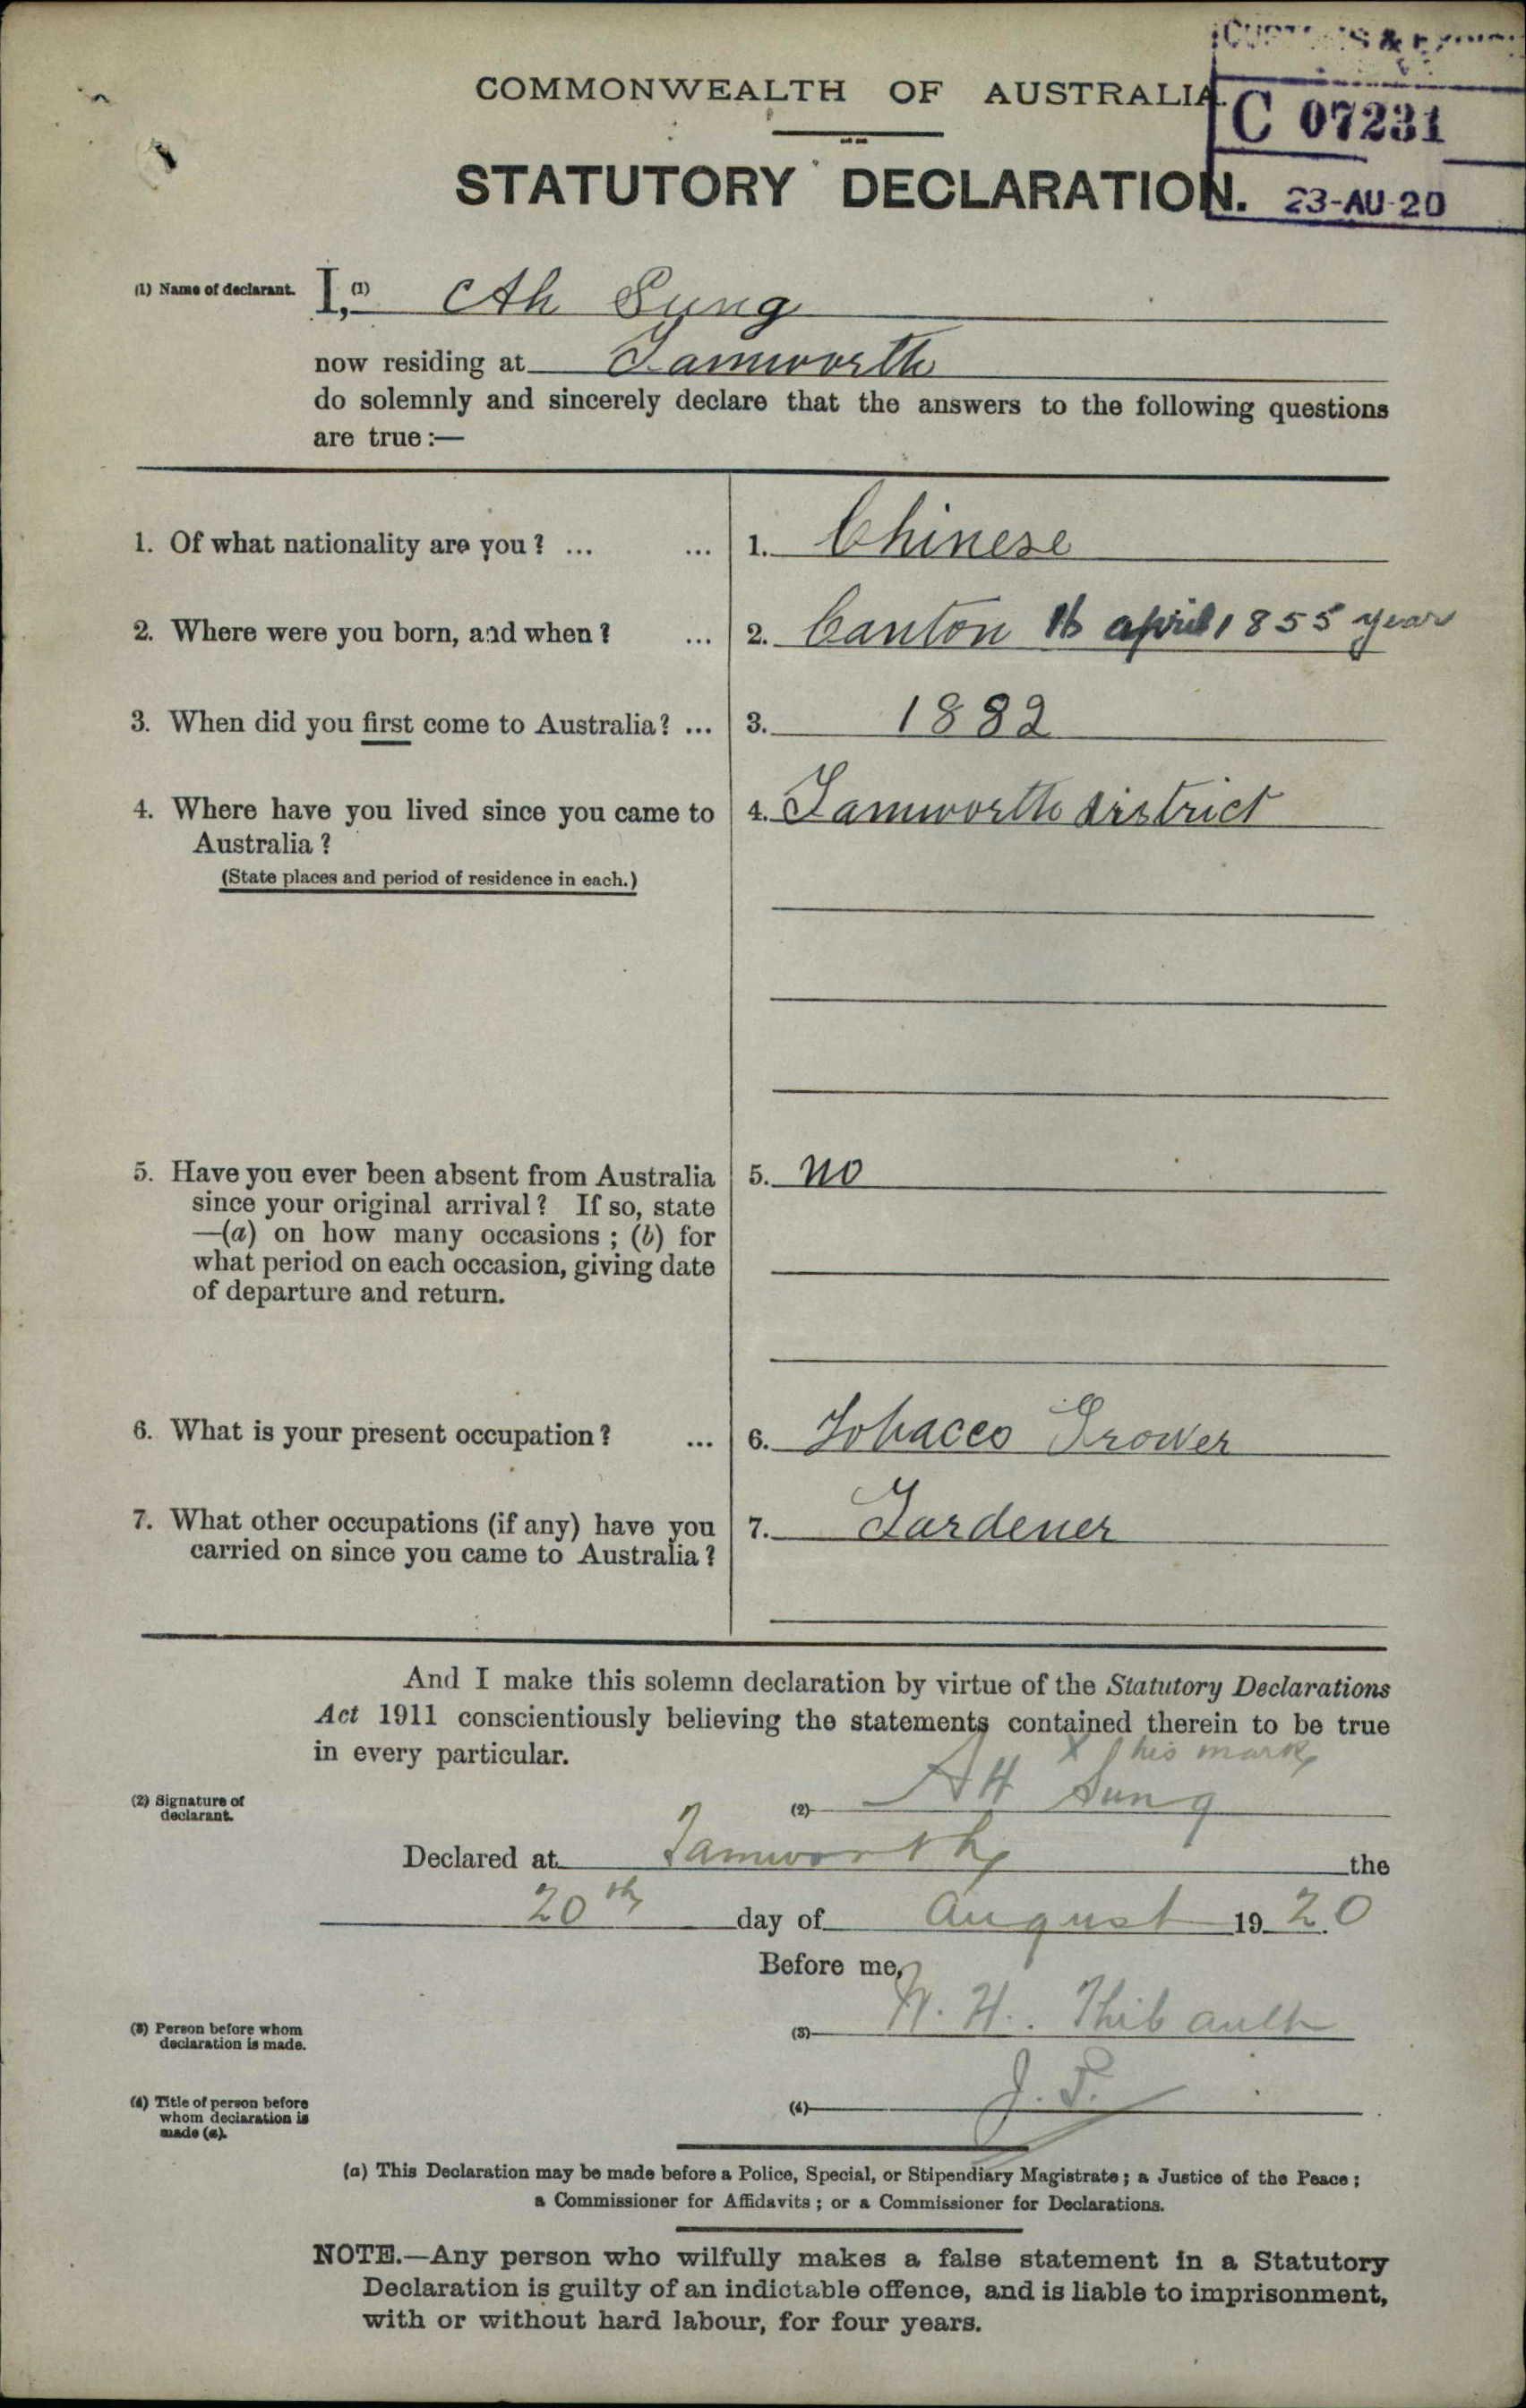 CUSTOMS &
COMMONWEALTH OF AUSTRALIA.
C 07231
STATUTORY DECLARATION.
23-AU-20
(1) Name of declarant. I, (1) Ah Sung
now residing at Tamworth
do solemnly and sincerely declare that the answers to the following questions
are true:—
1. Of what nationality are you? ... ... 1. Chinese
2. Where were you born, and when? ... 2. Canton 16 april 1855 year
3. When did you first come to Australia? ... 3. 1882
4. Where have you lived since you came to 4. Tamworth district
Australia?
(State places and period of residence in each.)
5. Have you ever been absent from Australia 5. no
since your original arrival? If so, state
—(a) on how many occasions; (b) for
what period on each occasion, giving date
of departure and return.
6. What is your present occupation? ... 6. Tobacco Grower
7. What other occupations (if any) have you 7. Gardener
carried on since you came to Australia?
And I make this solemn declaration by virtue of the Statutory Declarations
Act 1911 conscientiously believing the statements contained therein to be true
in every particular.
X his mark
(2) Signature of
declarant.
(2) AH Sung
Declared at Tamworth the
20th day of August 1920
Before me,
(3) Person before whom
declaration is made.
(3) W. H. Thibault
(4) Title of person before
whom declaration is
made (a).
(4) J. P.
(a) This Declaration may be made before a Police, Special, or Stipendiary Magistrate; a Justice of the Peace;
a Commissioner for Affidavits; or a Commissioner for Declarations.
NOTE.—Any person who wilfully makes a false statement in a Statutory
Declaration is guilty of an indictable offence, and is liable to imprisonment,
with or without hard labour, for four years.